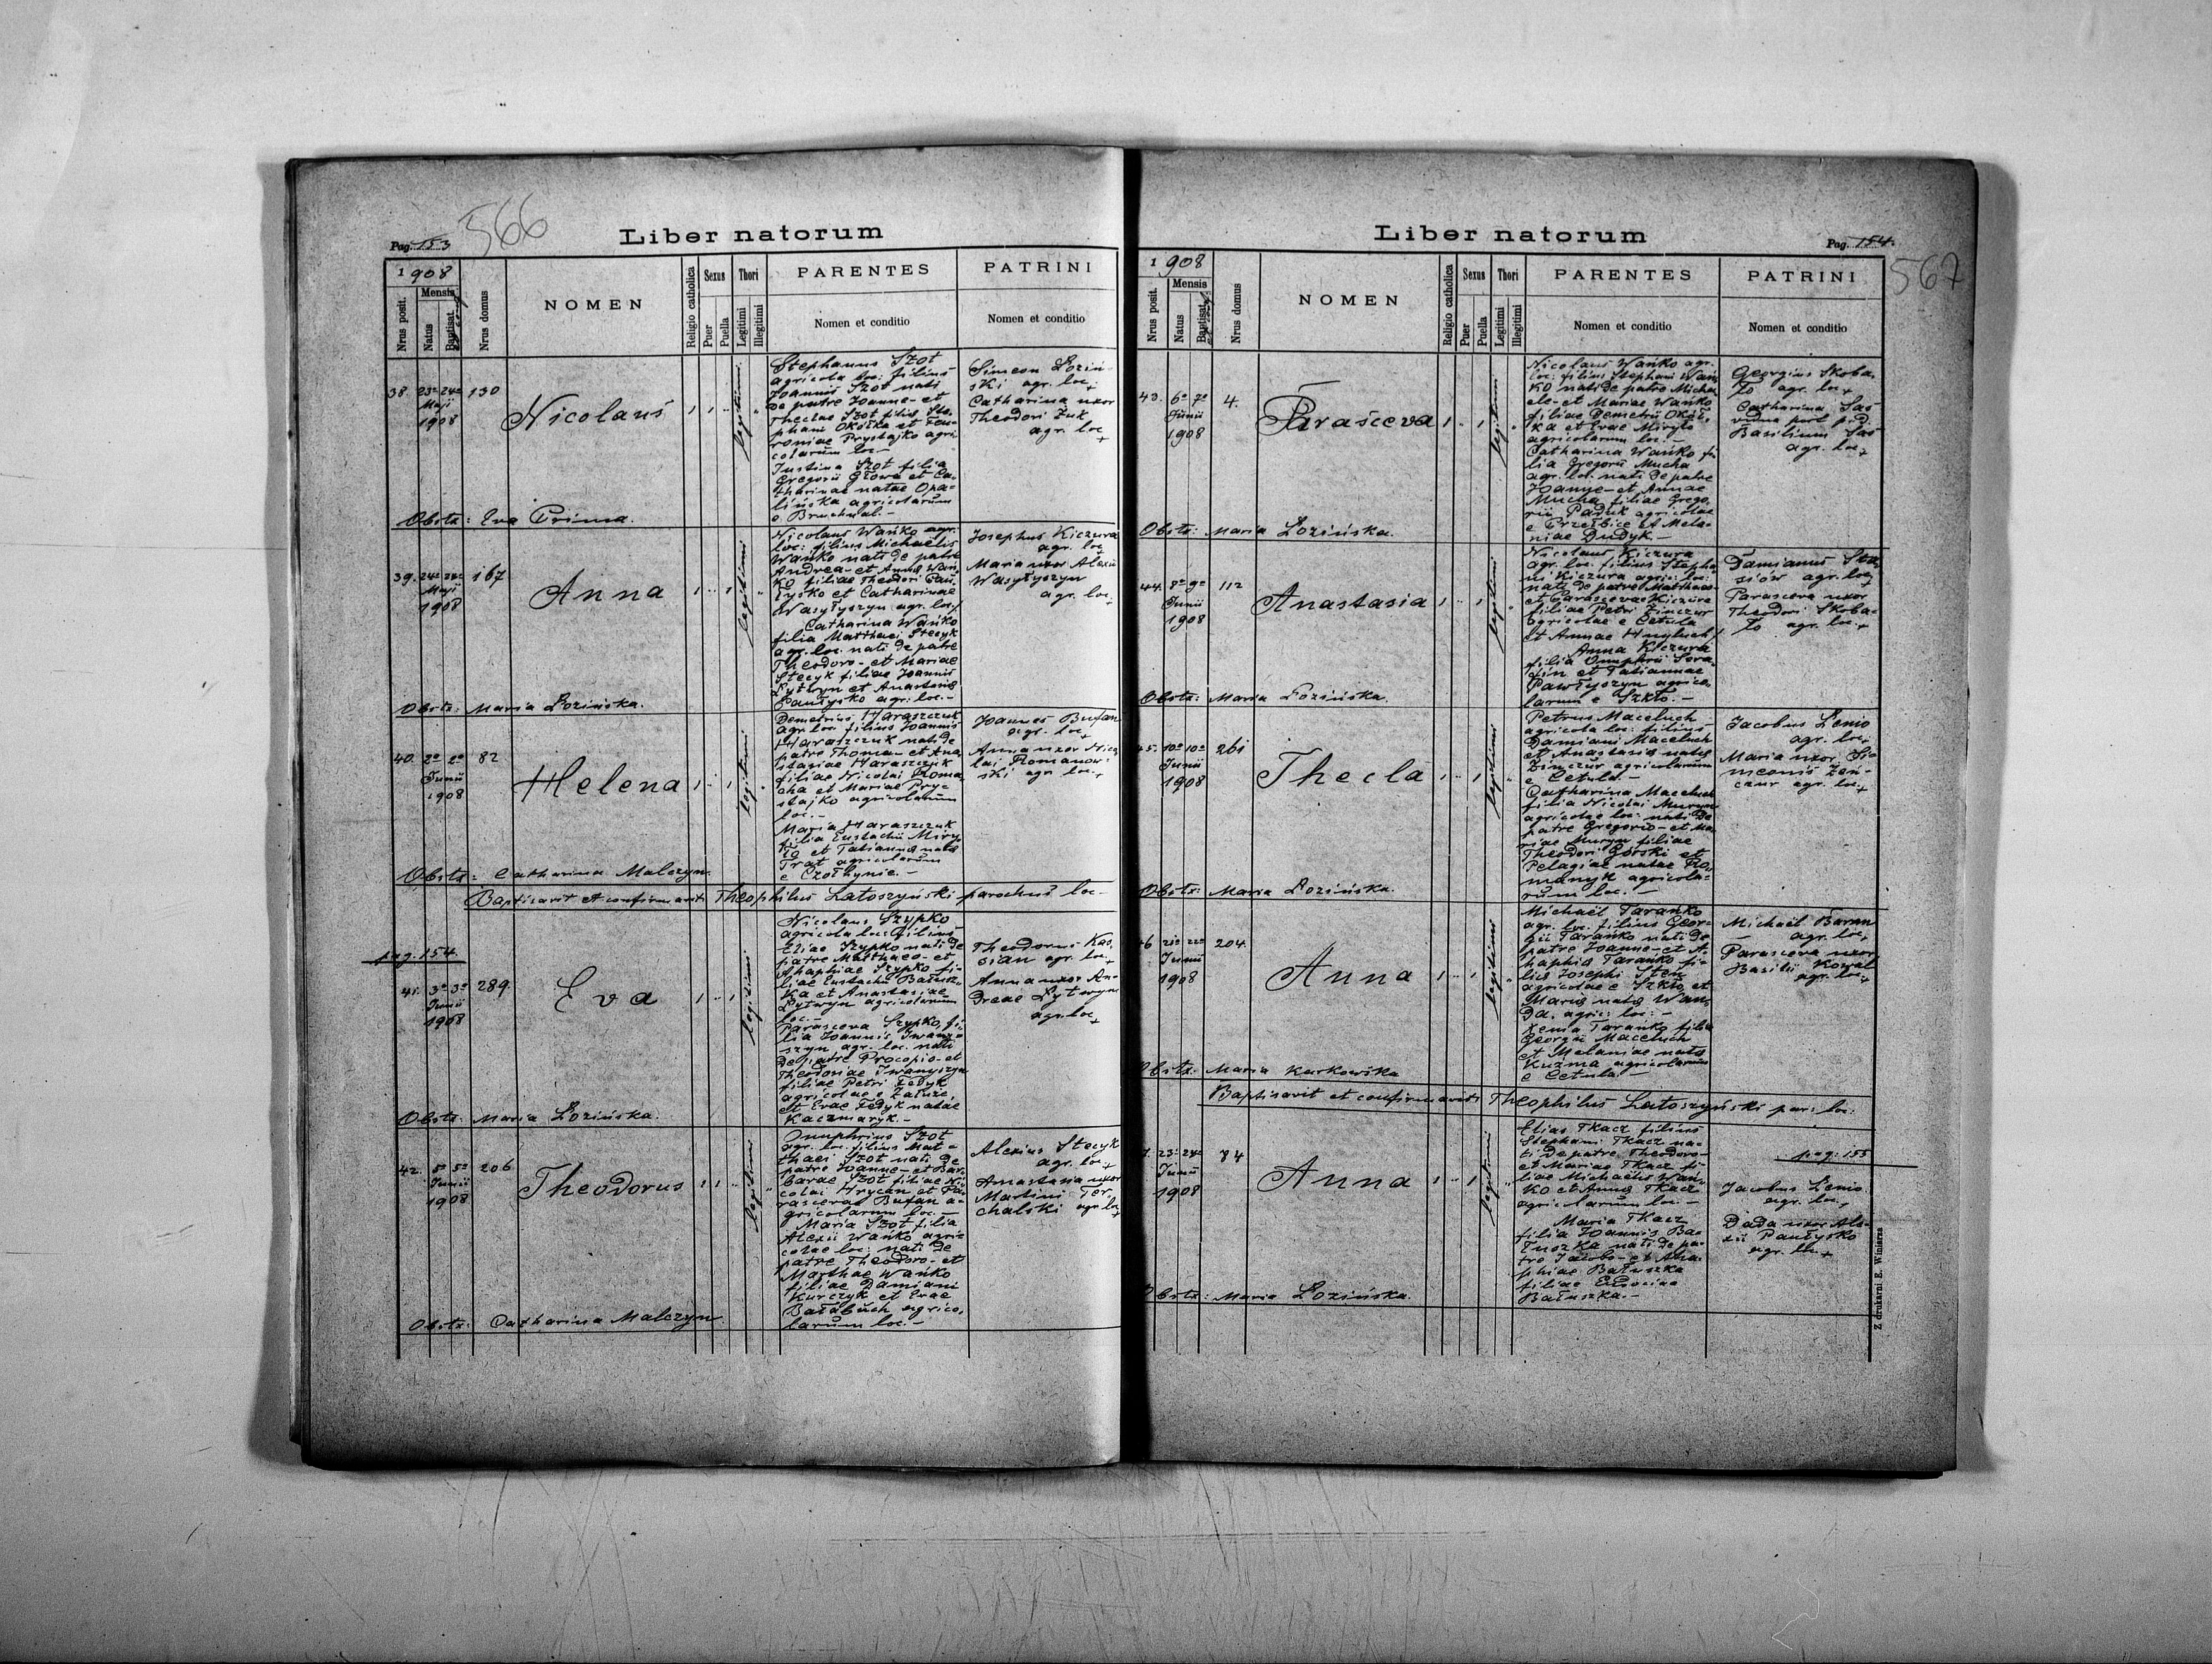 566
Liber natorum
Pag. 153
1908
Nrus posit.
Mensis
Natus
Baptisat.
Nrus domus
NOMEN
Religio catholica
Sexus
Puer
Puella
Thori
Legitimi
Illegitimi
PARENTES
Nomen et conditio
PATRINI
Nomen et conditio
38. 23a 24a 130
Maji
1908
Nicolaus
legitimi
Stephanus Szot
agricola loc: filius
Joannis Szot nati
de patre Joanne et
Theclae Szot filiae Ste-
phani Okółka et
Prystajko agri
colarum loc.-
Justina Szot filia
Gregorii Głowa et Ca-
tharinae natae Opa-
lińska agricolarum
e Bruchnal.-
Simeon Łoziń-
ski agr. loc.
Catharina uxor
Theodori Żuk
agr. loc.
Obstx: Eva Prima.
39. 24a 24a 167
Maji
1908
Anna
legitimi
Nicolaus Wańko agr.
loc: filius Michaelis
Wańko nati de patre
Andrea et Anna Wań
ko filiae Theodori Pau-
łysko et Catharinae
Wasyłyszyn agr. loc.
Catharina Wańko
filia Matthaei Stecyk
agr. loc. nati de patre
Theodoro et Mariae
Stecyk filiae Joannis
Łytwyn et Anastasia
Paułysko agr. loc.-
Josephus Kiczura
agr. loc.
Maria uxor Alexii
Wasyłyszyn
agr. loc.
Obstx: Maria Łozińska.
40. 2a 2a 82
Junii
1908
Helena
legitimi
Demetrius Haraszczuk
agr. loc. filius Joannis
Haraszczuk nati de
patre Thoma et Ana
stasiae Haraszczuk
filiae Nicolai Roma
cha et Mariae Pry-
stajko agricolarum
loc.-
Maria Haraszczuk
filia Eustachii Miry
ło et Tatianna nata
Trat agricolarum
e Czołhynie.-
Joannes Bufan
agr. loc.
Anna uxor Nico
lai Romanow-
ski agr. loc.
Obstx: Catharina Malczyn
Baptisavit et confirmavit Theophilus Latoszyński parochus loc.-
pag. 154.
41. 3a 3a 289
Junii
1908
Eva
legitimi
Nicolaus Szypko
agricola loc: filius
Eliae Szypko nati de
patre Matthaeo et
Ahaphiae Szypko fi-
liae Eustachii Bałusz-
ka et Anastasiae
Łytwyn agricolarum
loc.-
Parasceva Szypko fi-
lia Joannis Iwany-
szyn agr. loc. nati
de patre Procopio et
Theodosiae Iwanyszyn
filiae Petri Fedyk
agricolae e Załuże,
et Evae Fedyk natae
Kaczmaryk.-
Theodorus Kas
sian agr. loc.
Anna uxor An-
dreae Łytwyn
agr. loc.
Obstx: Maria Łozińska.
42. 5a 5a 206
Junii
1908
Theodorus
legitimi
Onuphrius Szot
agr. loc. filius Mat-
thaei Szot nati de
patre Joanne et Bar
barae Szot filiae Ni
colai Hrycan et Pa
rascevae Bufan a-
gricolarum loc.-
Maria Szot filia
Alexii Wańko agri-
colae loc: nati de
patre Theodoro et
Marthae Wańko
filiae Damiani
Kurczyk et Evae
Bałabuch agrico-
larum loc.-
Alexius Stecyk
agr. loc.
Anastasia uxor
Martini Ter-
chalski agr. loc.
Obstx: Catharina Malczyn
Liber natorum
Pag. 154.
567
1908
Nrus posit.
Mensis
Natus
Baptisat.
Nrus domus
NOMEN
Religio catholica
Sexus
Puer
Puella
Thori
Legitimi
Illegitimi
PARENTES
Nomen et conditio
PATRINI
Nomen et conditio
43. 6a 7a 4.
Junii
1908
Parasceva
legitimi
Nicolaus Wańko agr.
loc: filius Stephani Wań
ko nati de patre Micha
ele et Mariae Wańko
filiae Demetrii Okół-
ka et Evae Miryło
agricolarum loc.-
Catharina Wańko fi
lia Gregorii Mucha
agr. loc. nati de patre
et Annae
Mucha filiae Grego
rii Paduk agricolae
e Przełbice et Mela-
niae Dudyk.-
Georgius Skoba-
ło agr. loc.
Catharina Sas
vidua post p.d.
Basilium Sas
agr. loc.
Obstx: Maria Łozińska.
44. 8a 9a 112
Junii
1908
Anastasia
legitimi
Nicolaus Kiczura
agr. loc. filius Stepha
ni Kiczura agric: loc:
nati de patre Matthaeo
et Parascevae Kiczura
filiae Petri Zinczur
agricolae e Cetula
et Annae Hnyluch
Anna Kiczura
filia Onuphrii Sera
fin et Tatiannae
Pawłyszyn agrico
larum e Szkło.-
Damianus Sta-
siów agr. loc.
Parasceva uxor
Theodori Skoba-
ło agr. loc.
Obstx: Maria Łozińska.
45. 10a 10a 261
Junii
1908
Thecla
legitimi
Petrus Maceluch
agricola loc: filius
Damiani Maceluch
et Anastasia nata
Zinczur agricolarum
e Cetula.-
Catharina Maceluch
filia Nicolai Muryn
agricolae loc: nati de
patre Gregorio et Ma
riae Muryn filiae
Theodori Górski et
Pelagiae natae Ro
manyk agricola-
rum loc.-
Jacobus Senio
agr. loc.
Maria uxor Si-
meonis Zen-
czur agr. loc.
Obstx: Maria Łozińska.
46 21a 22a 204.
Junii
1908
Anna
legitimi
Michaël Tarańko
agr. loc. filius Geor-
gii Tarańko nati de
patre Joanne et A-
haphia Tarańko fi-
lia Josephi Sten
agricolae e Szkło et
Maria nata Wan
da. agric: loc:-
Xenia Tarańko filia
Georgii Maceluch
et Melaniae nata
Kuźma agricolarum
e Cetula.-
Michaël Baran
agr. loc.
Parasceva uxor
Basilii Kowal
agr. loc.
Obstx: Maria Kurkowska
Baptisavit et confirmavit Theophilus Latoszyński par: loc:
pag: 155
23a 24a 84
Junii
1908
Anna
legitimi
Elias Tkacz filius
Stephani Tkacz na-
ti de patre Theodoro
et Mariae Tkacz fi-
liae Michaelis Wań
ko et Anna Tkacz
agricolarum loc.-
Maria Tkacz
filia Joannis Ba-
łuszka nati de pa-
tre Jacobo et Aha-
phiae Bałuszka
filiae
Bałuszka.-
Jacobus Senio
agr. loc.
Dada uxor Ale-
xii Paułysko
agr. loc.
Obstx: Maria Łozińska.
Z drukarni E. Winiarza